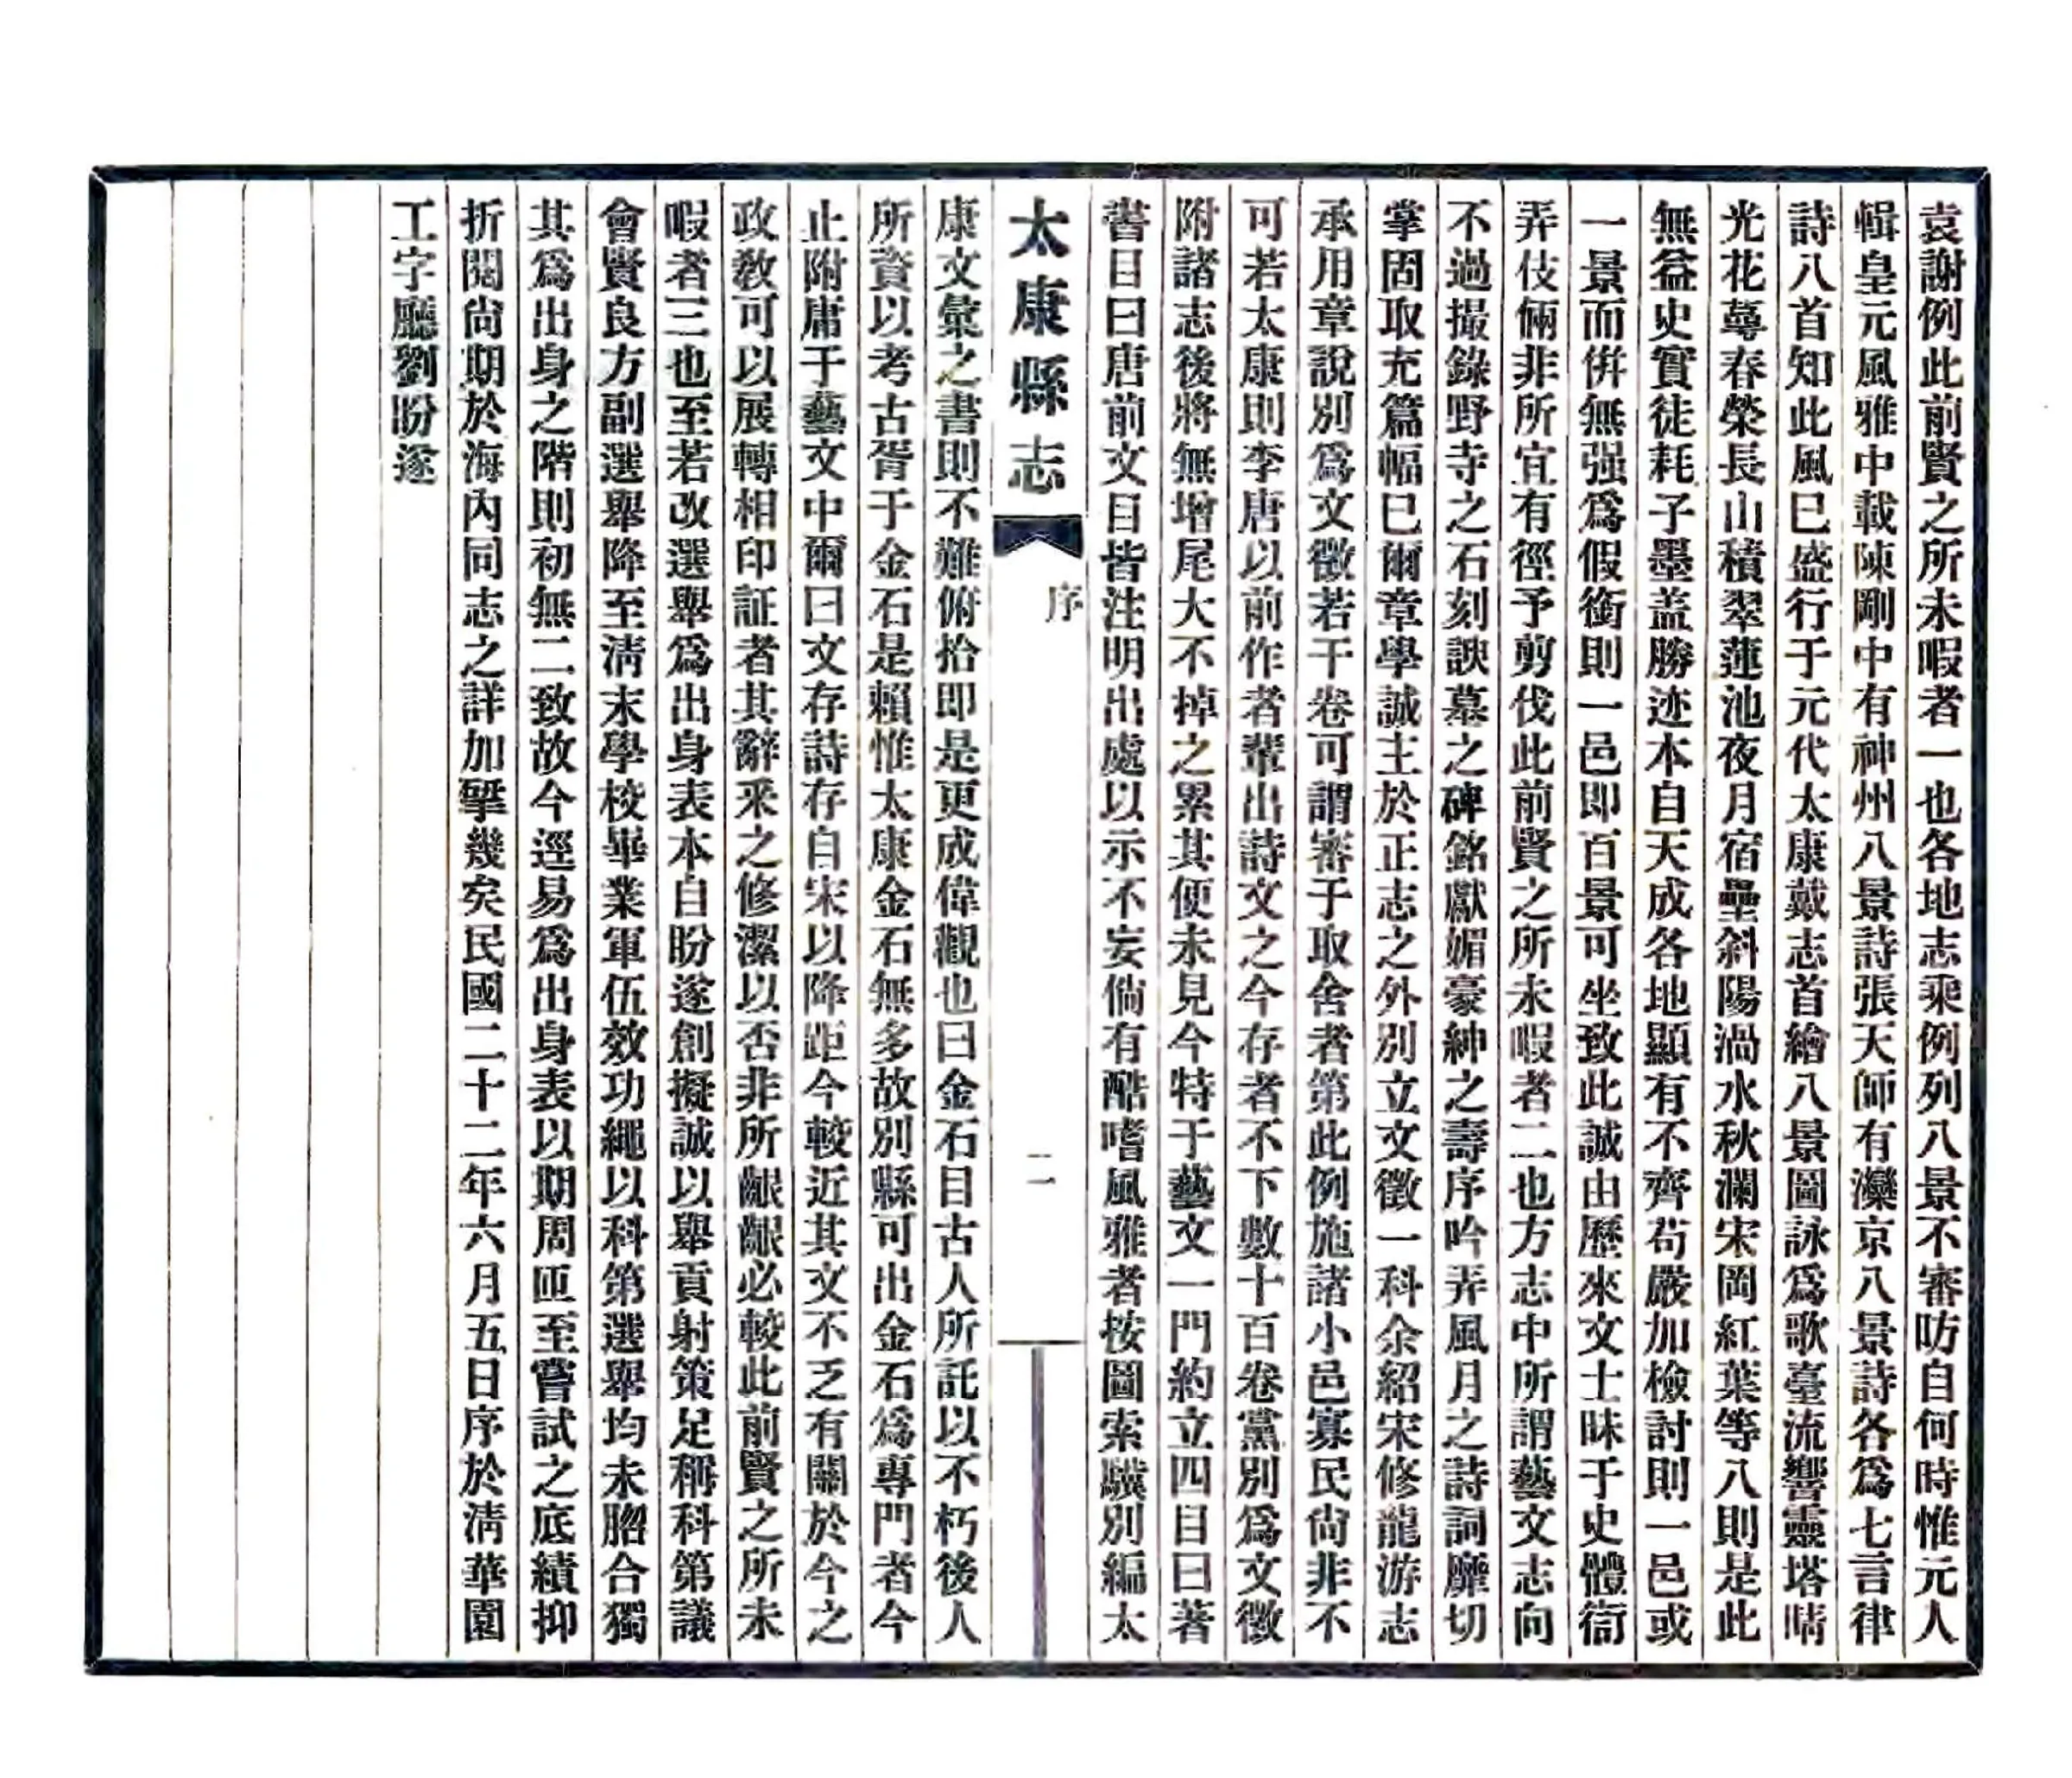 袁謝例此前賢之所未暇者一也各地志乘例列八景不審昉自何時惟元人
輯皇元風雅中載陳剛中有神州八景詩張天師有灤京八景詩各爲七言律
詩八首知此風巳盛行于元代太康戴志首繪八景圖詠爲歌臺流響靈塔晴
光花蕚春榮長山積翠蓮池夜月宿壘斜陽渦水秋瀾宋岡紅葉等八則是此
無益史實徒耗子墨盖勝迹本自天成各地顯有不齊茍嚴加檢討則一邑或
一景而倂無强爲假銜則一邑即百景可坐致此誠由歷來文士昧于史體衒
弄伎倆非所宜有徑予剪伐此前賢之所未暇者二也方志中所謂藝文志向
不過撮錄野寺之石刻諛墓之碑銘獻媚豪紳之壽序吟弄風月之詩詞靡切
掌固取充篇幅巳爾章學誠主於正志之外別立文徵一科余紹宋修龍游志
承用章說別爲文徵若干卷可謂審于取舍者第此例施諸小邑寡民尙非不
可若太康則李唐以前作者輩出詩文之今存者不下數十百卷黨別爲文徵
附諸志後將無增尾大不掉之累其便未見今特于藝文一門約立四目曰著
書目曰唐前文目皆注明出處以示不妄倘有酷嗜風雅者按圖索驥別編太
太康縣志
序
二
康文彙之書則不難俯拾即是更成偉觀也曰金石目古人所託以不朽後人
所資以考古胥于金石是賴惟太康金石無多故別縣可出金石爲專門者今
止附庸于藝文中爾曰文存詩存自宋以降距今較近其文不乏有關於今之
政敎可以展轉相印証者其辭釆之修潔以否非所齦齦必較此前賢之所未
暇者三也至若改選舉爲出身表本自盼遂創擬誠以舉貢射策足稱科第議
會賢良方副選舉降至淸末學校畢業軍伍效功繩以科第選舉均未脗合獨
其爲出身之階則初無二致故今逕易爲出身表以期周匝至嘗試之底績抑
折閱尙期於海內同志之詳加擥幾矣民國二十二年六月五日序於淸華園
工字廳劉盼遂